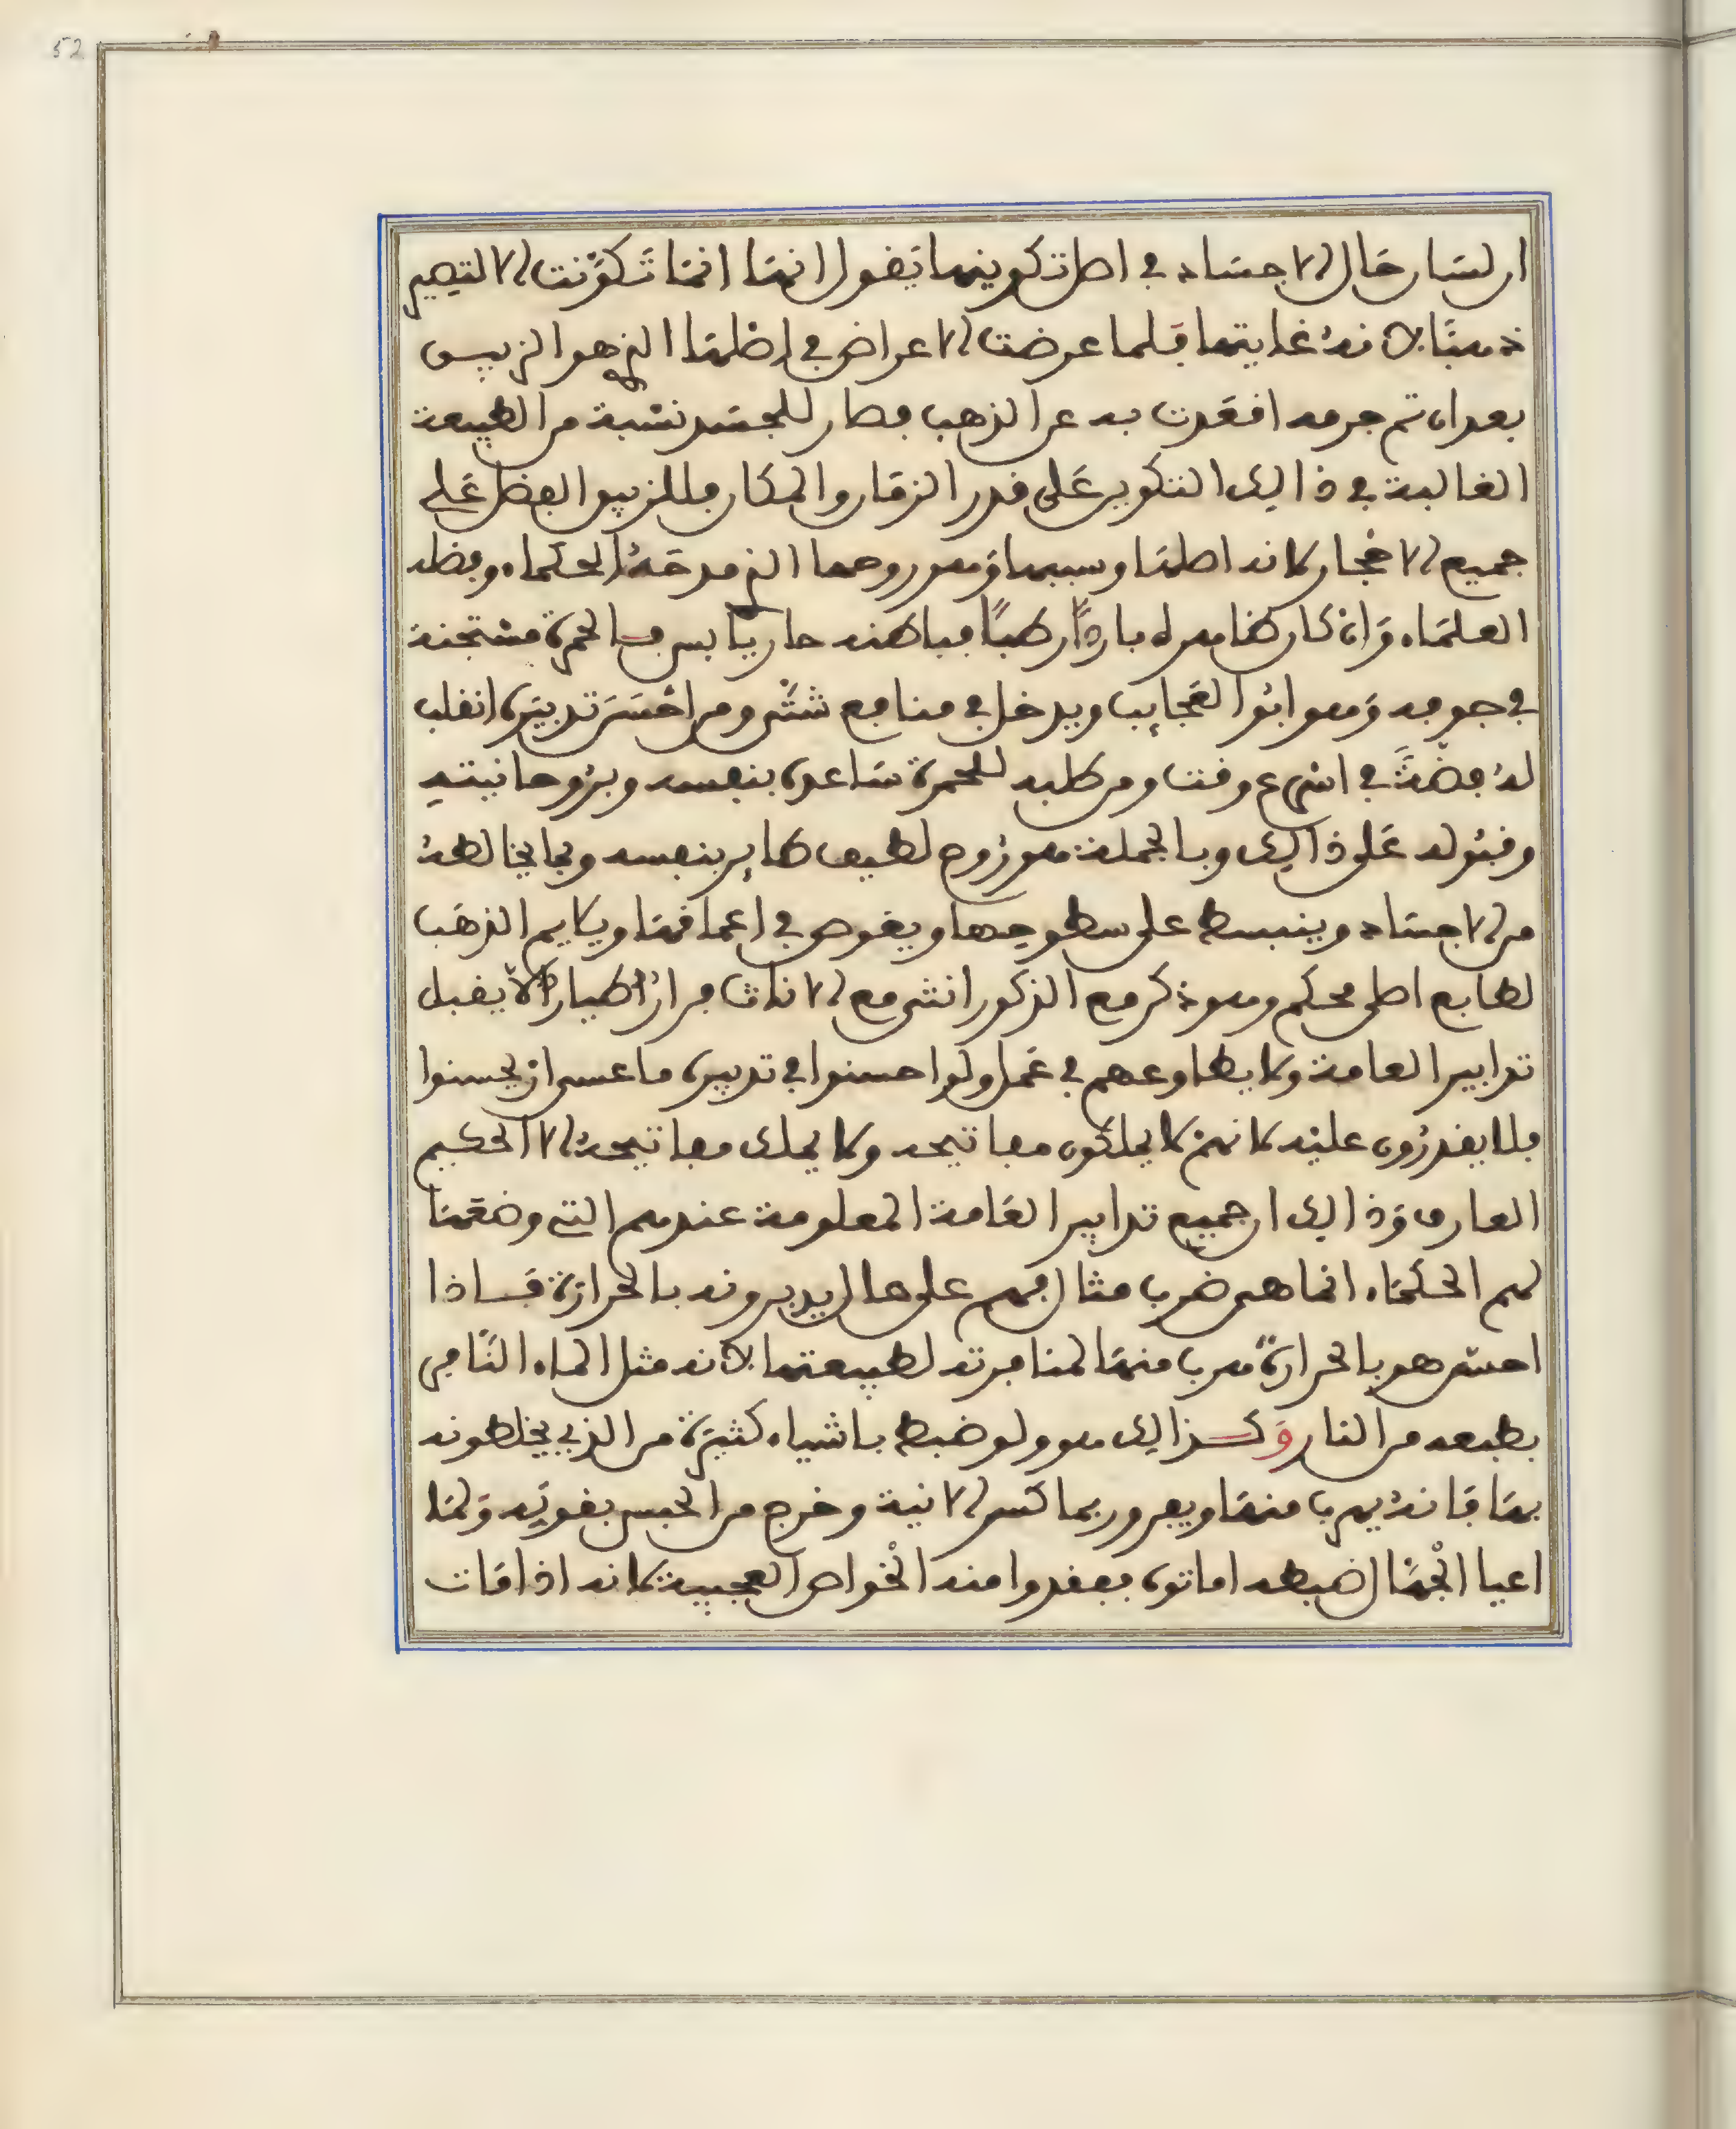 52
ان لسان حال الاجساد في اصل تكوينها يقول انها انما تكونت لا لتصير
ذهبًا لانه غايتها فلما عرضت الاعراض في اصلها الذي هو الزيبق
بعد ان تم جرمه اقعدت به عن الذهب فصار للجسد نسبة من الطبيعة
الغالبة في ذالك التكوين على قدر الزمان والمكان فللزيبق الفضل على
جميع الاحجار لانه اصلها وسببها وهو روحها الذي مدحه الحكماء وفضله
العلماء وان كان ظاهره باردًا رطبًا فباطنه حار يابس فالحمرة مستجنة
في جوفه وهو ابو العجايب ويدخل في منافع شتى ومن احسن تدبيره انقلب
له فضة في اسرع وقت ومن طلبه للحمرة ساعده بنفسه وبروحانيته
وقبوله على ذالك وبالجملة هو روح لطيف طاير بنفسه وبما يخالطه
من الاجساد وينبسط على سطوحها ويغوص في اعماقها ويلايم الذهب
لطابع اصلي محكم وهو ذكر مع الذكور انثى مع الاناث فرار طيار لا يقبل
تدابير العامة ولا يطاوعهم في عمل ولو احسنوا في تدبيره ما عسى ان يحسنوا
فلا يقدرون عليه لانهم لا يملكون مفاتيحه ولا يملك مفاتيحه الا الحكيم
العارف وذالك ان جميع تدابير العامة المعلومة عندهم التي وضعها
لهم الحكماء انما هي ضرب مثال فهم على حال يدبرونه بالحرارة فاذا
احس هو بالحرارة هرب منها لمنافرته لطبيعتها لانه مثل الماء النافر
بطبعه من النار وكذالك هو ولو ضبط باشياء كثيرة من الذي يخلطونه
بها فانه يهرب منها ويفر وربما كسر الانية وخرج من الحبس بقوته ولما
اعيا الجهال ضبطه اماتوه ففقدوا منه الخواص العجيبة لانه اذا مات